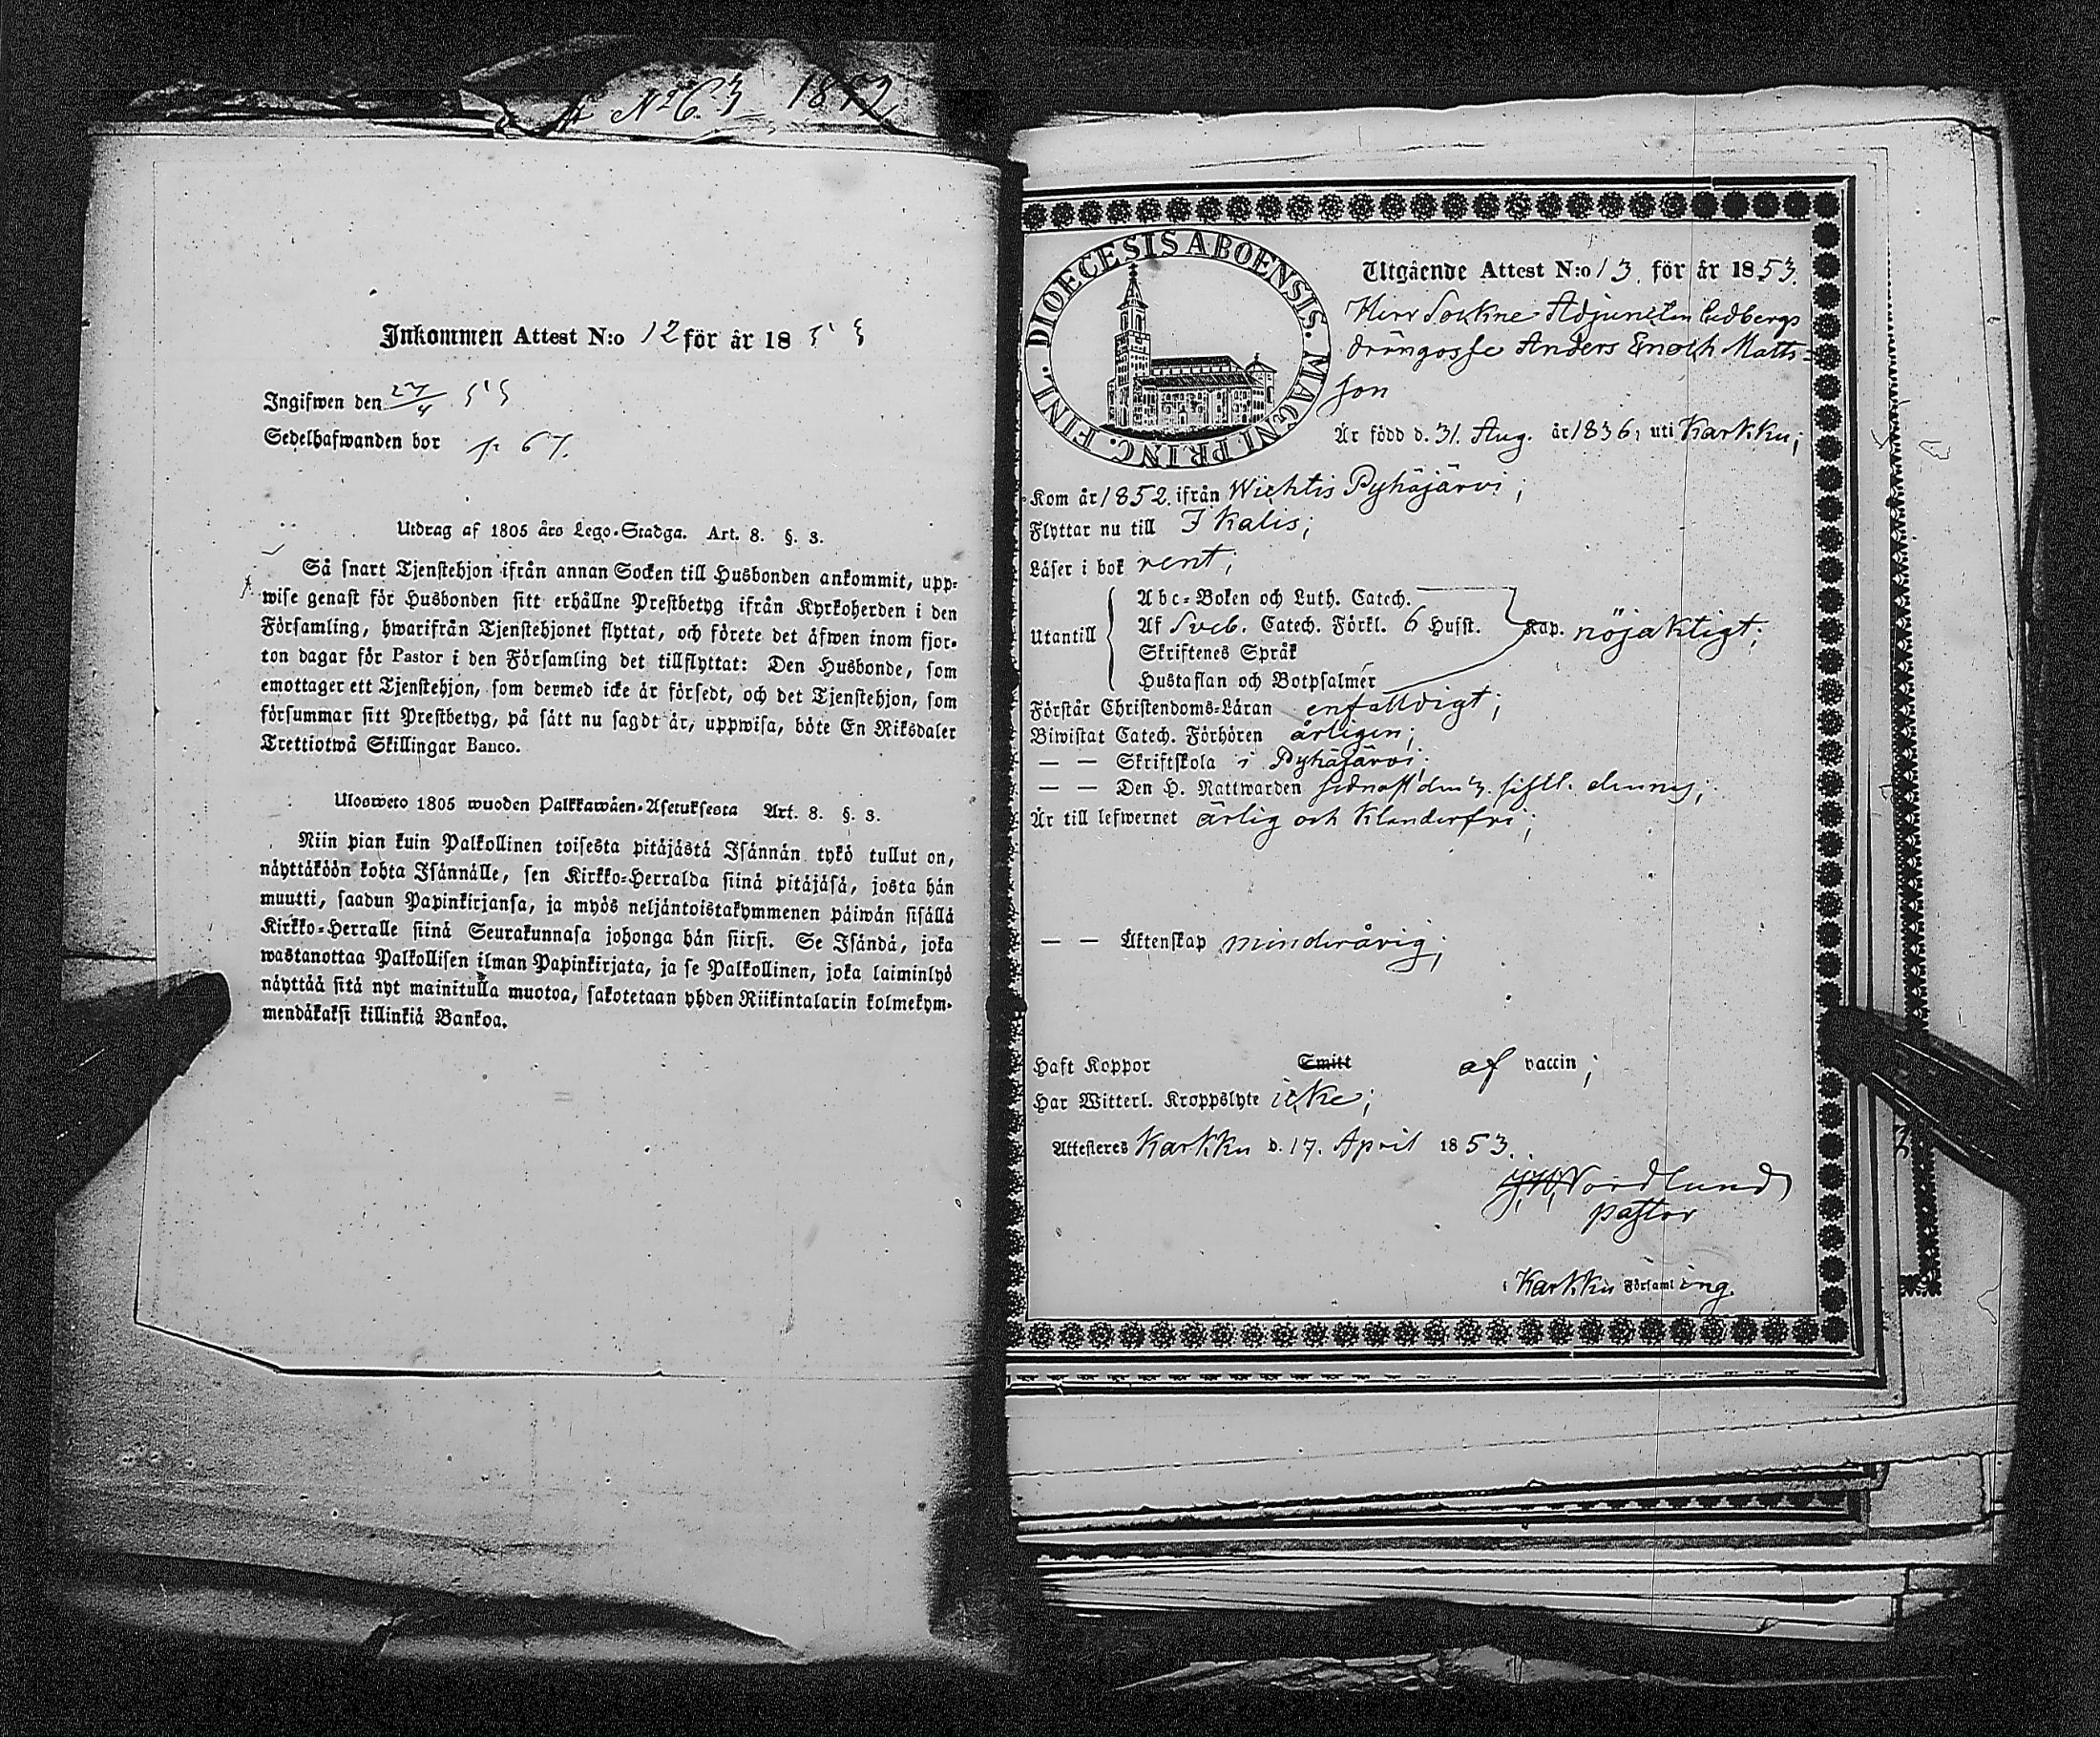 Nº 63 1852
Inkommen Attest N:o 12 för år 18 53
Ingifwen den 27/4 53
Sedelhafwanden bor p 67.
Utdrag af 1805 års Lego-Stadga. Art. 8. §. 3.
Så snart Tjenstehjon ifrån annan Socken till Husbonden ankommit, upp-
wise genast för Husbonden sitt erhållne Prestbetyg ifrån Kyrkoherden i den
Församling, hwarifrån Tjenstehjonet flyttat, och förete det äfwen inom fjor-
ton dagar för Pastor i den Församling det tillflyttat: Den Husbonde, som
emottager ett Tjenstehjon, som dermed icke är försedt, och det Tjenstehjon, som
försummar sitt Prestbetyg, på sätt nu sagdt är, uppwisa, böte En Riksdaler
Trettiotwå Skillingar Banco.
Ulosweto 1805 wuoden Palkkawäen-Asetuksesta Art. 8. §. 3.
Niin pian kuin Palkollinen toisesta pitäjästä Isännän tykö tullut on,
näyttäköön kohta Isännälle, sen Kirkko-Herralda siinä pitäjäsä, josta hän
muutti, saadun Papinkirjansa, ja myös neljäntoistakymmenen päiwän sisällä
Kirkko-Herralle siinä Seurakunnasa johonga hän siirsi. Se Isändä, joka
wastanottaa Palkollisen ilman Papinkirjata, ja se Palkollinen, joka laiminlyö
näyttää sitä nyt mainitulla muotoa, sakotetaan yhden Riikintalarin kolmekym-
mendäkaksi killinkiä Bankoa.
DIOECESIS ABOENSIS. MAGNI PRINC. FINL.
Utgående Attest N:o 13. för år 1853.
Herr Sockne Adjuncten Lidbergs
drängosse Anders Enoch Matts-
son
Är född d. 31. Aug. år 1836, uti Karkku;
Kom år 1852. ifrån Wichtis Pyhäjärvi;
Flyttar nu till Ikalis;
Läser i bok rent;
Utantill
Abc-Boken och Luth. Catech.
Af Sveb. Catech. Förkl. 6 Hufst. Kap. nöjaktigt;
Skriftenes Språk
Hustaflan och Botpsalmer
Förstår Christendoms-Läran enfalldigt;
Biwistat Catech. Förhören årligen;
— — Skriftskola i Pyhäjärvi;
— — Den H. Nattwarden sednast den 3. sistl. dennes;
Är till lefwernet ärlig och klanderfri;
— — Äktenskap minderårig;
Haft Koppor Smitt af vaccin;
Har Witterl. Kroppslyte icke;
Attesteres Karkku d. 17. April 1853.
Nordlund
pastor
i Karkku Församling.